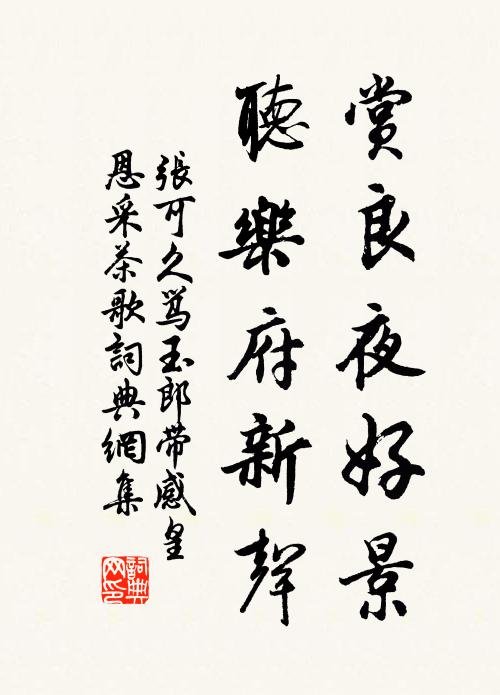 賞良夜好景
聽樂府新聲
張可久罵玉郎帶感皇
恩采茶歌詞典網集
詞典
网印